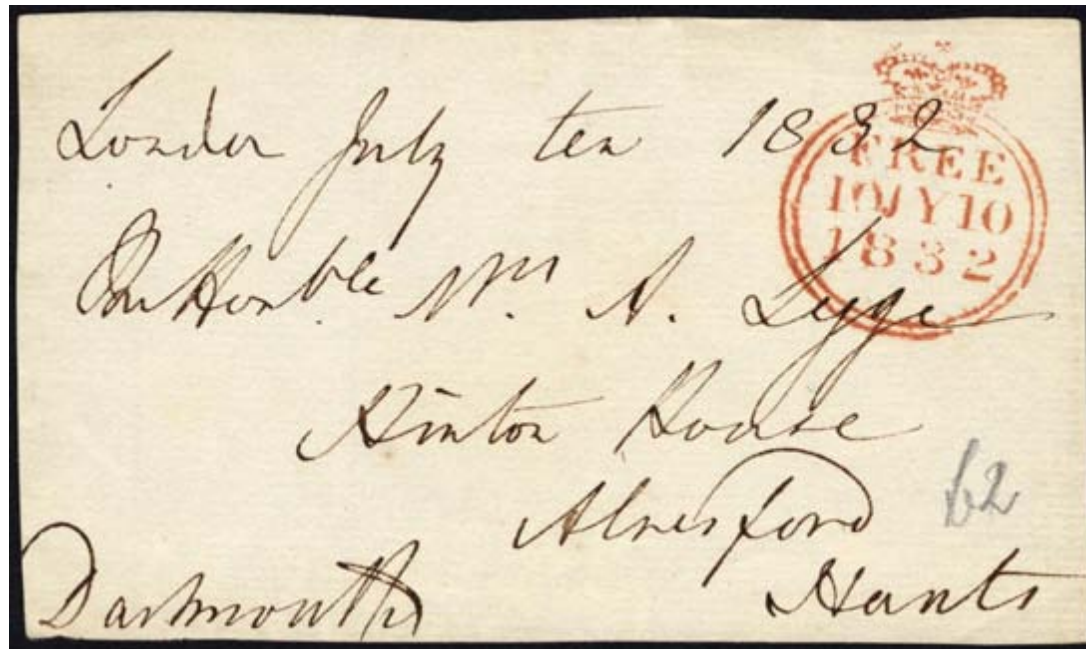 London July ten 1832
FREE
10 JY 10
1832
The Honble. Mrs. A. Legge
Hinton House
Alresford
£2
Dartmouth
Hants